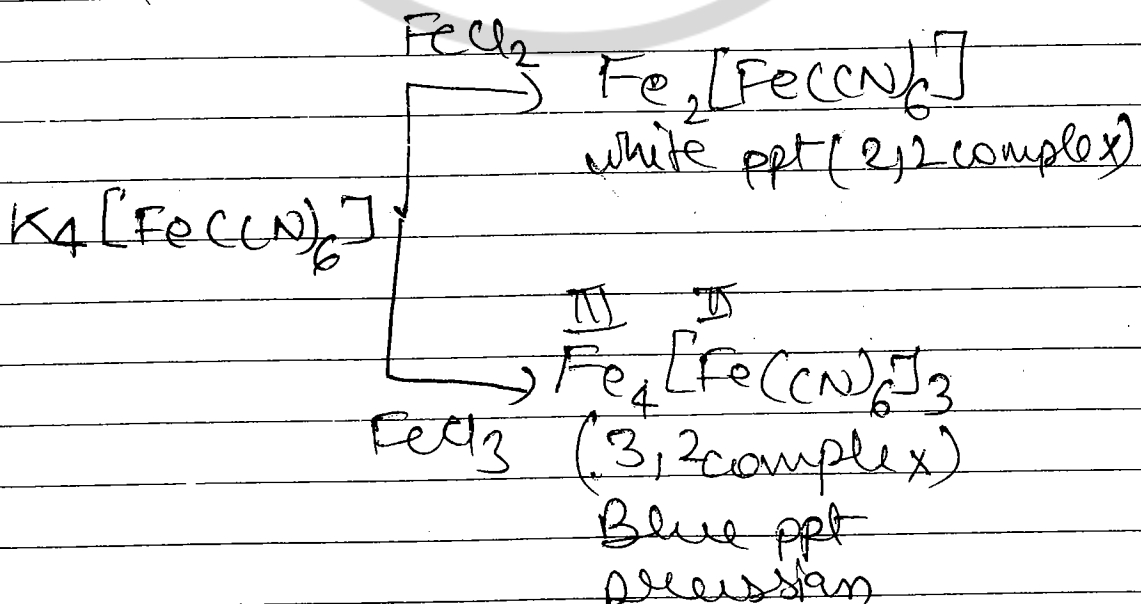 FeCl2
Fe2[Fe(CN)6]
white ppt (2,2 complex)
K4[Fe(CN)6]
III II
Fe4[Fe(CN)6]3
FeCl3 (3,2 complex)
Blue ppt
prussian